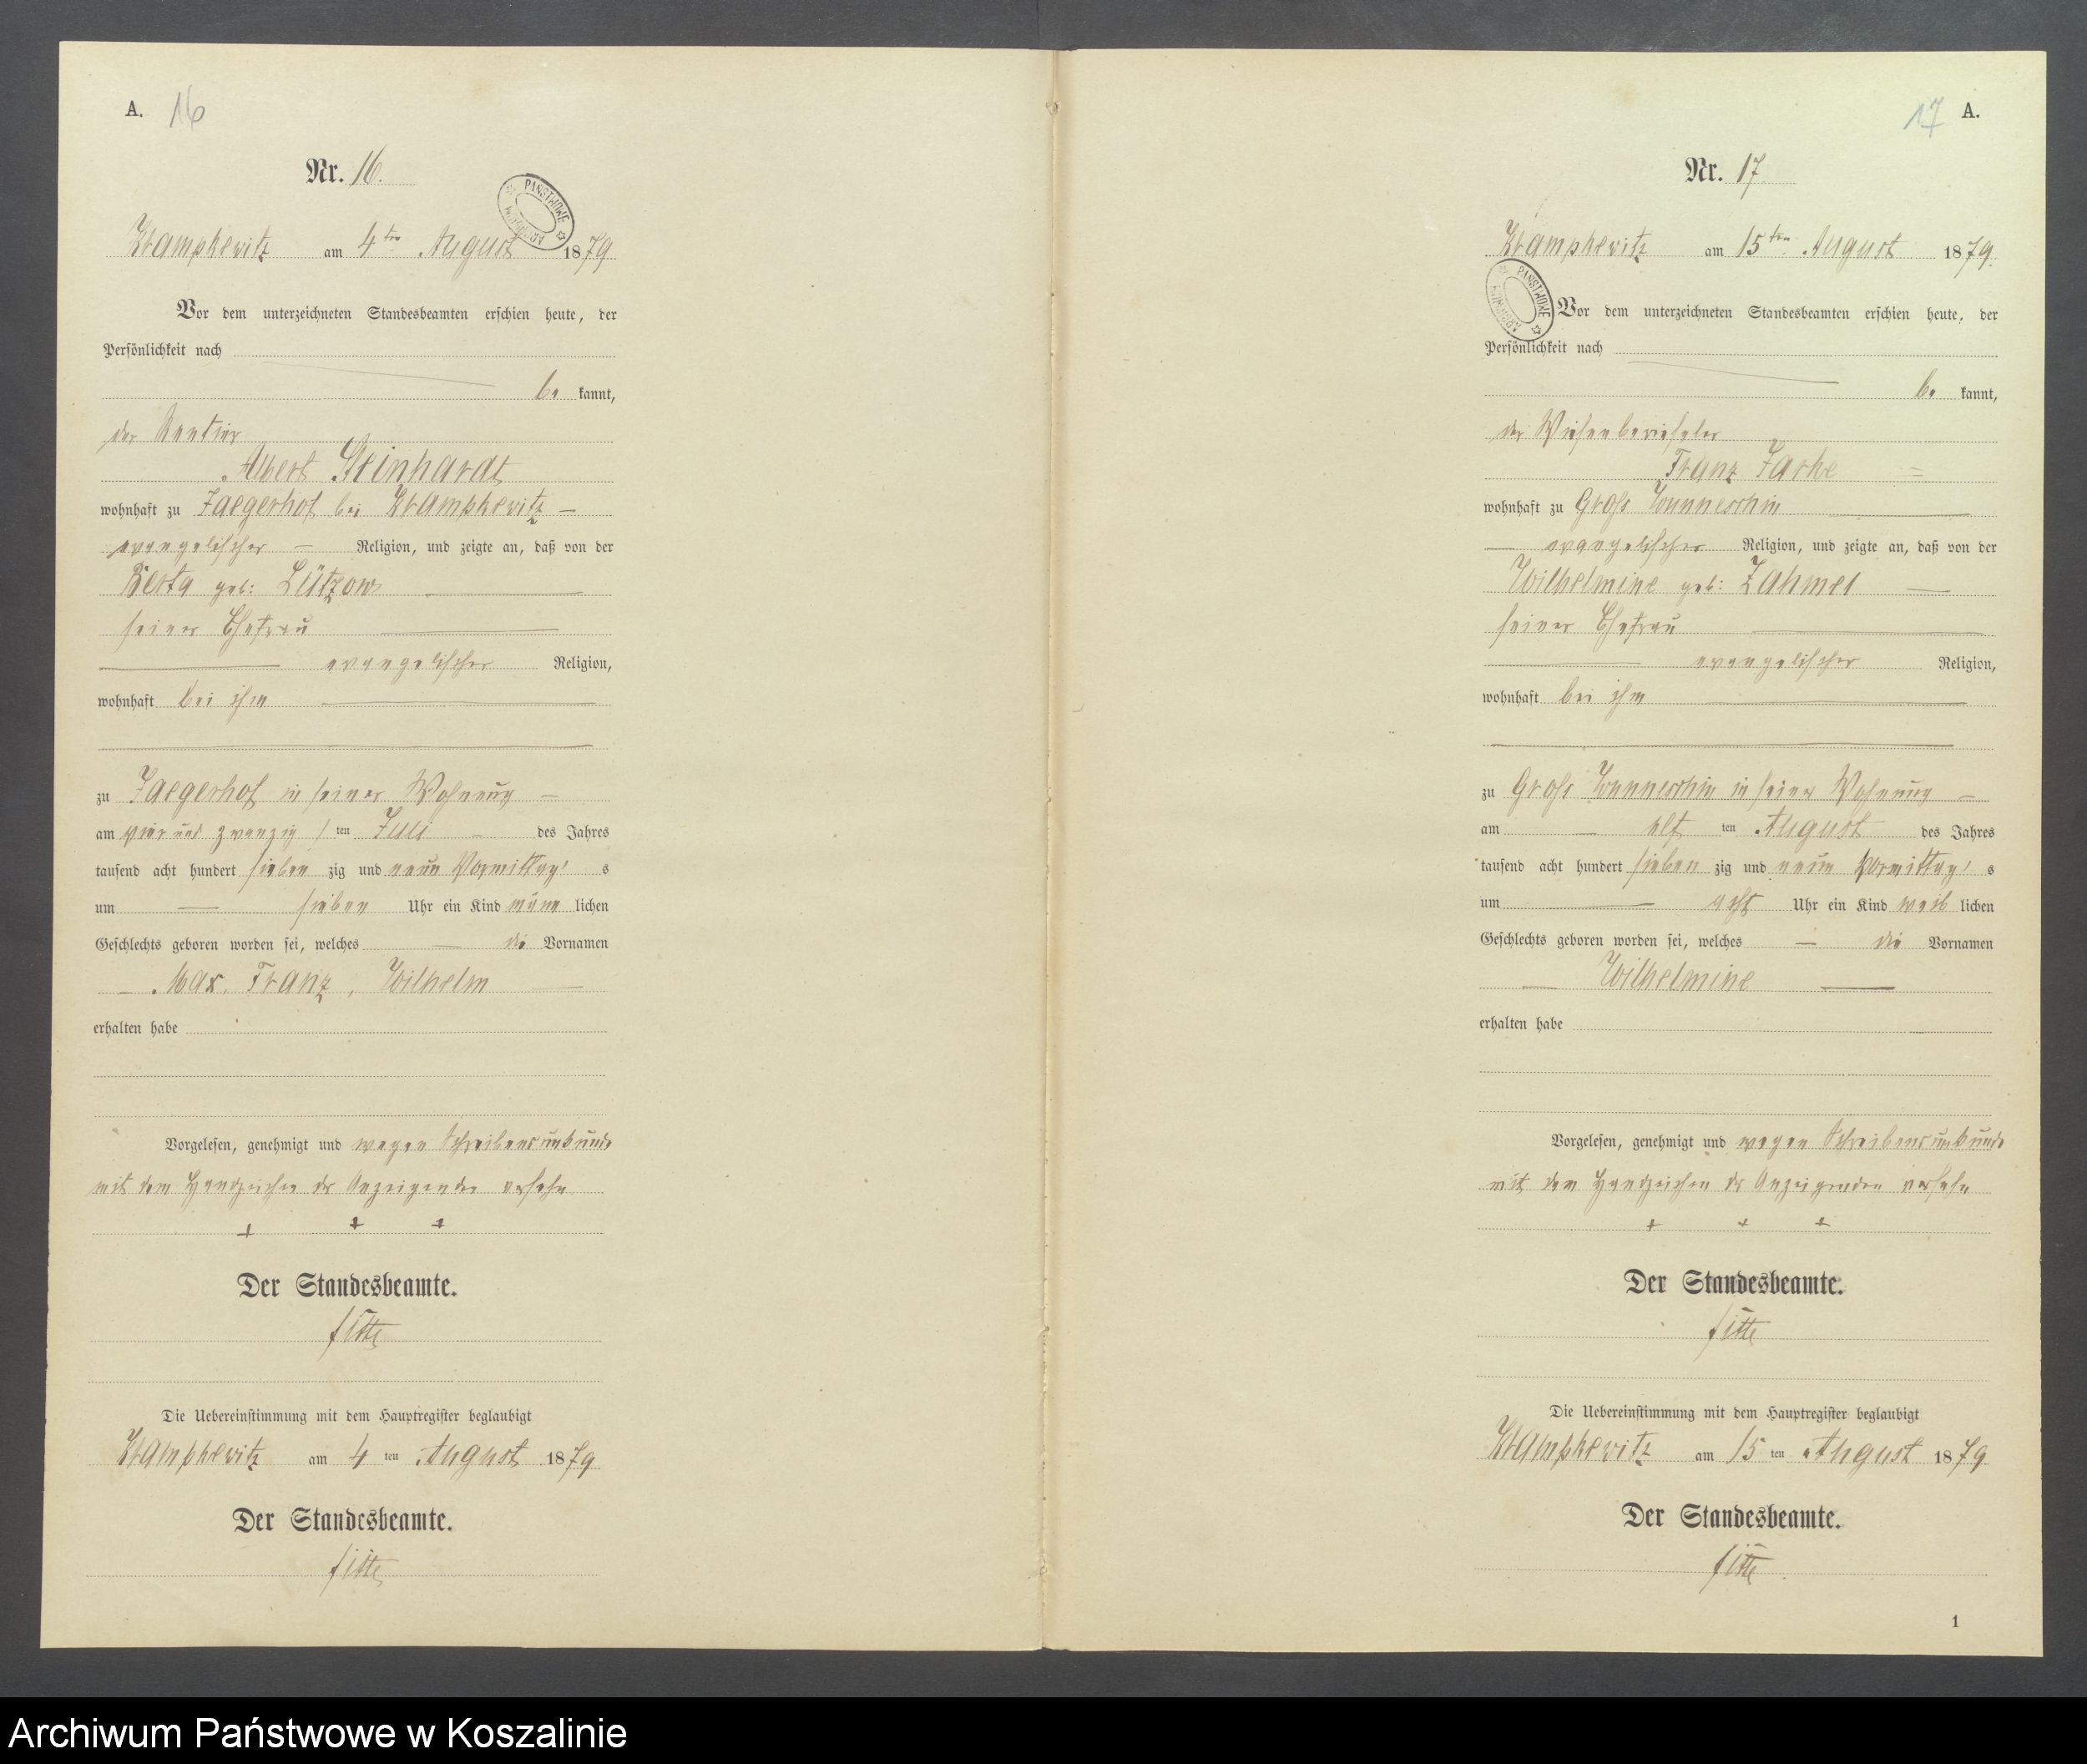 A. 16
Nr. 16.
PAŃSTWOWE ARCHIWUM
Krampkewitz am 4ten August 1879
Vor dem unterzeichneten Standesbeamten erschien heute, der
Persönlichkeit nach
be kannt,
der Rentier
Albert Steinhardt
wohnhaft zu Jaegerhof bei Krampkewitz
evangelischer Religion, und zeigte an, daß von der
Berta geb: Lützow
seiner Ehefrau
evangelischer Religion,
wohnhaft bei ihm
zu Jaegerhof in seiner Wohnung
am vier und zwanzig sten Juli des Jahres
tausend acht hundert sieben zig und neun Vormittag s
um sieben Uhr ein Kind männ lichen
Geschlechts geboren worden sei, welches die Vornamen
Max, Franz, Wilhelm
erhalten habe
Vorgelesen, genehmigt und wegen Schreibensunkunde
mit dem Handzeichen des Anzeigenden versehn
+ + +
Der Standesbeamte.
Die Uebereinstimmung mit dem Hauptregister beglaubigt
Krampkewitz am 4 ten August 1879
Der Standesbeamte.
17 A.
Nr. 17
Krampkewitz am 15ten August 1879.
PAŃSTWOWE ARCHIWUM
Vor dem unterzeichneten Standesbeamten erschien heute, der
Persönlichkeit nach
be kannt,
der Wiesenberieseler
Franz Jarke
wohnhaft zu Gross Wunneschin
evangelischer Religion, und zeigte an, daß von der
Wilhelmine geb: Zahmel
seiner Ehefrau
evangelischer Religion,
wohnhaft bei ihm
zu Gross Wunneschin in seiner Wohnung
am elf ten August des Jahres
tausend acht hundert sieben zig und neun Vormittag s
um acht Uhr ein Kind weib lichen
Geschlechts geboren worden sei, welches die Vornamen
Wilhelmine
erhalten habe
Vorgelesen, genehmigt und wegen Schreibensunkunde
mit dem Handzeichen des Anzeigenden versehn
+ + +
Der Standesbeamte.
Die Uebereinstimmung mit dem Hauptregister beglaubigt
Krampkewitz am 15 ten August 1879
Der Standesbeamte.
1
Archiwum Państwowe w Koszalinie